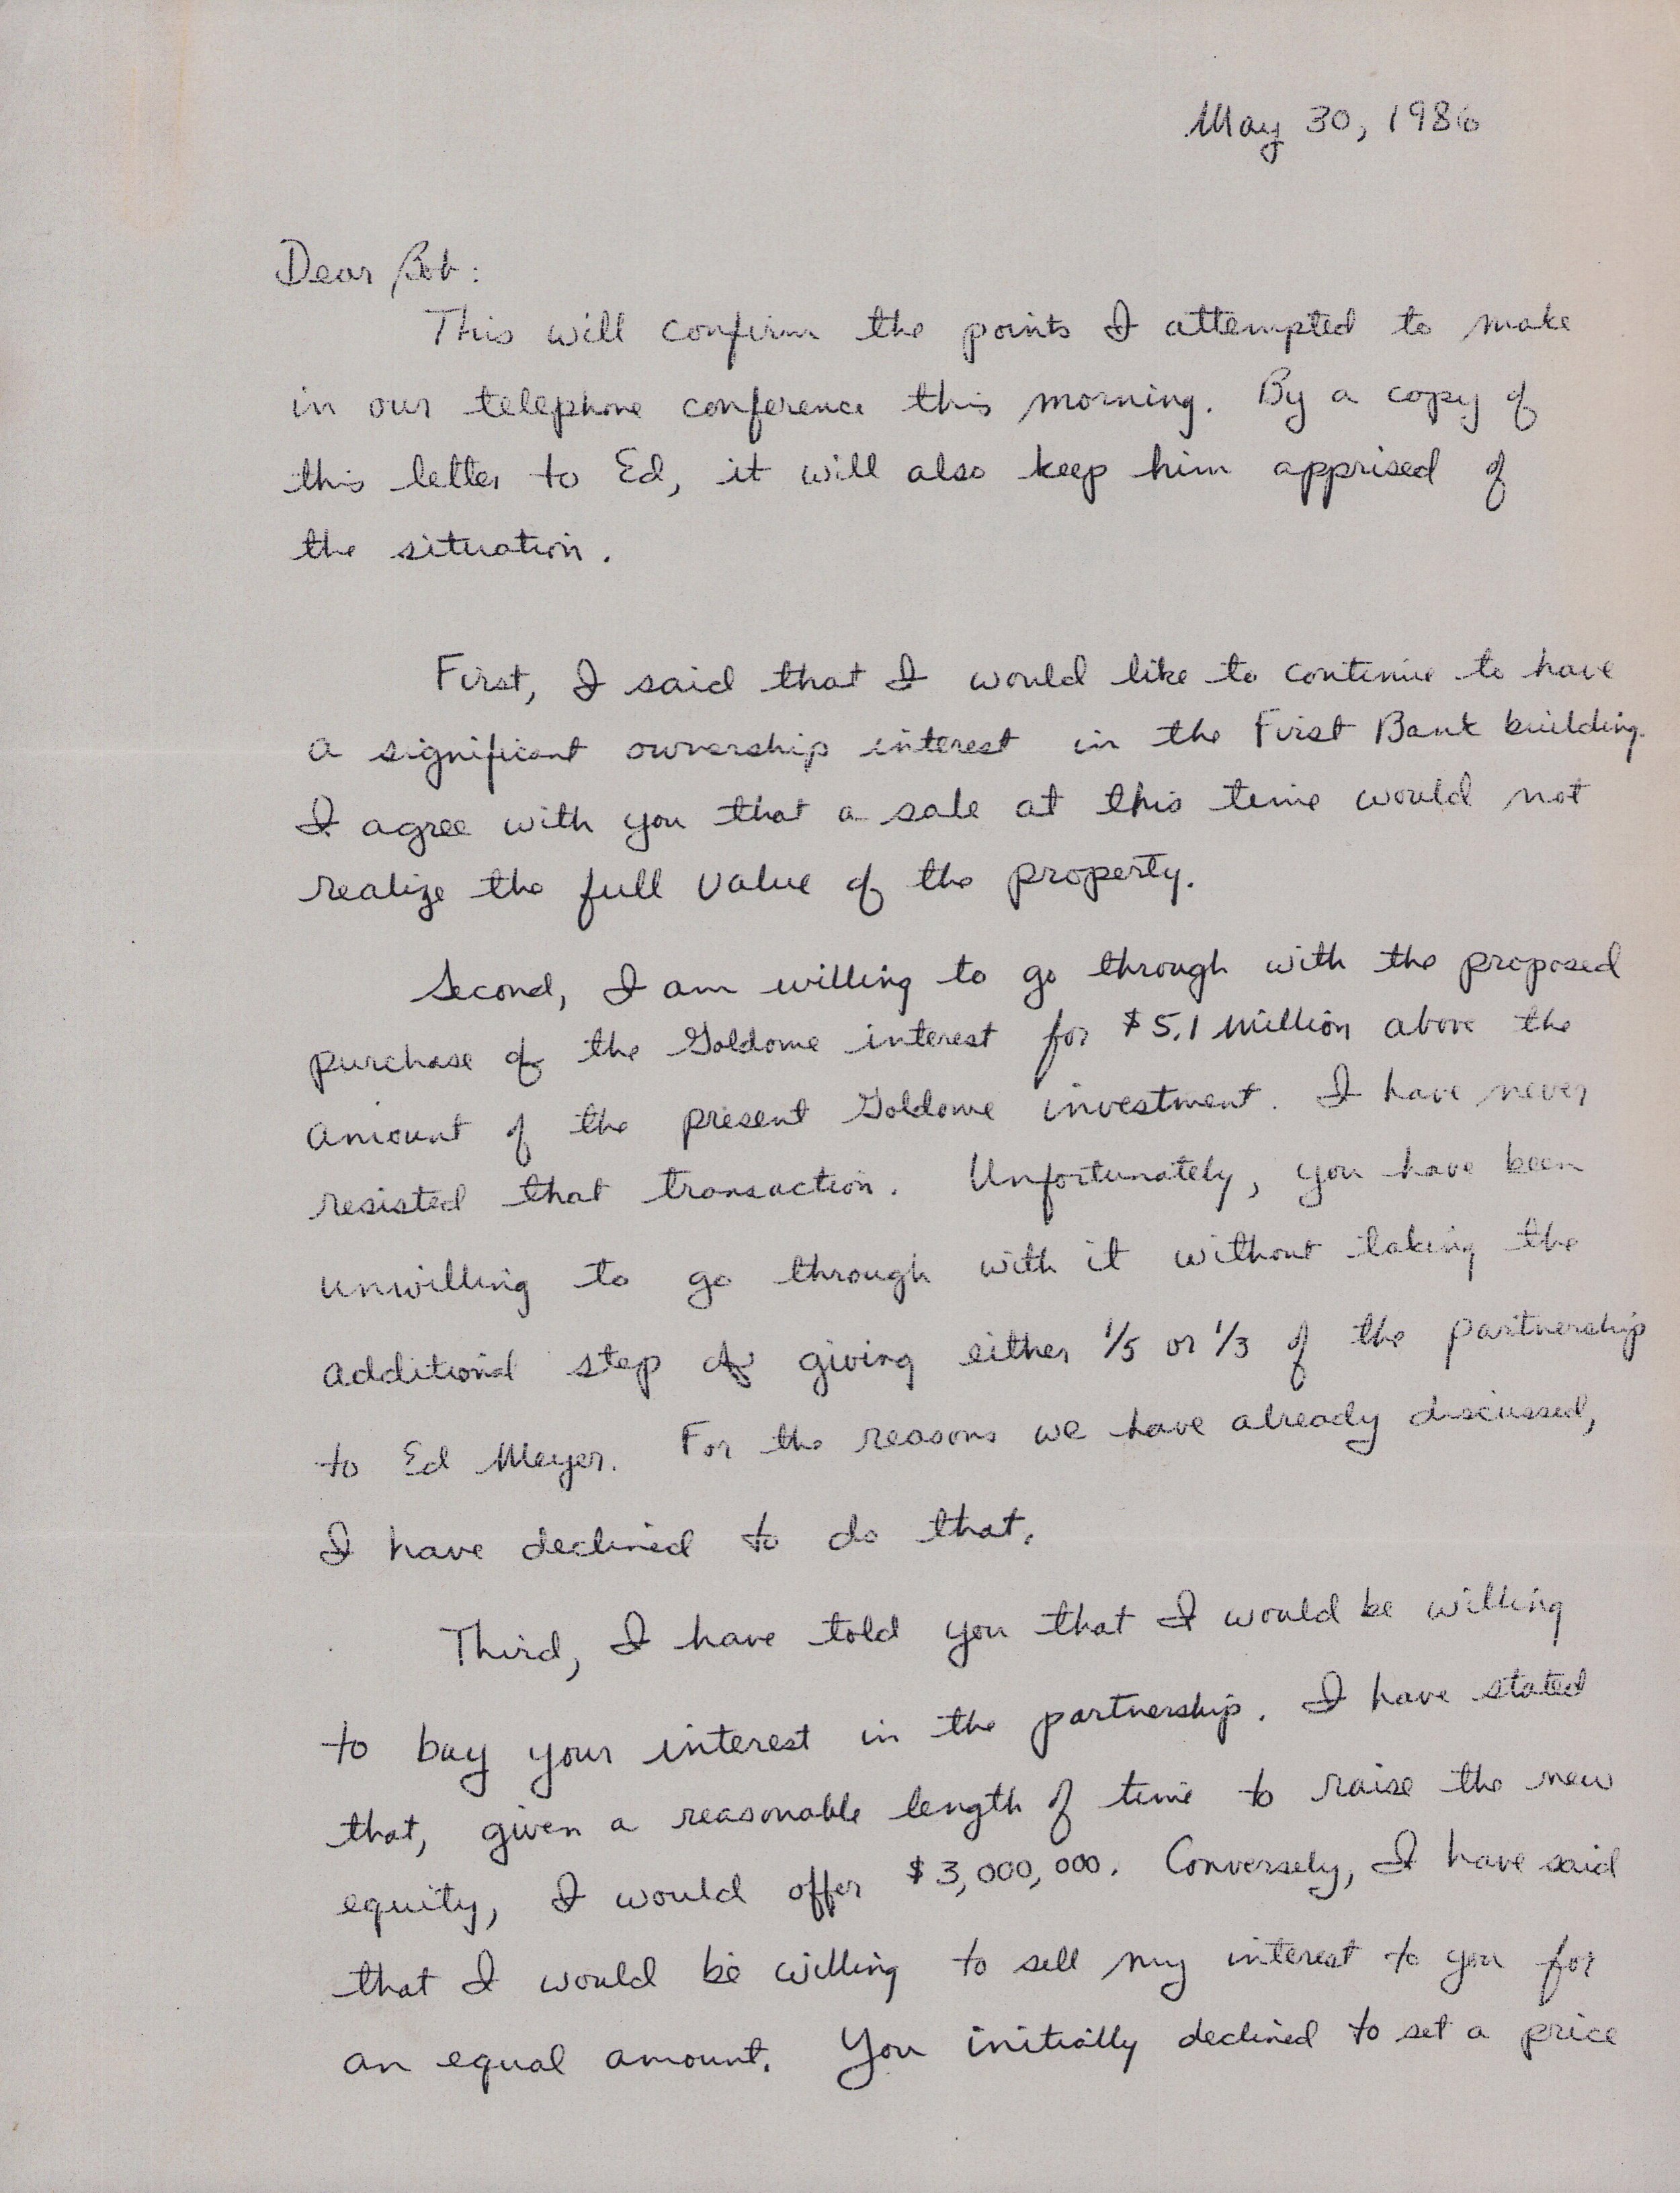 May 30, 1986
Dear Bob:
This will confirm the points I attempted to make
in our telephone conference this morning. By a copy of
this letter to Ed, it will also keep him apprised of
the situation.
First, I said that I would like to continue to have
a significant ownership interest in the First Bank building.
I agree with you that a sale at this time would not
realize the full value of the property.
Second, I am willing to go through with the proposed
purchase of the Goldome interest for $5.1 million above the
amount of the present Goldome investment. I have never
resisted that transaction. Unfortunately, you have been
unwilling to go through with it without taking the
additional step of giving either 1/5 or 1/3 of the partnership
to Ed Meyer. For the reasons we have already discussed,
I have declined to do that.
Third, I have told you that I would be willing
to buy your interest in the partnership. I have stated
that, given a reasonable length of time to raise the new
equity, I would offer $3,000,000. Conversely, I have said
that I would be willing to sell my interest to you for
an equal amount. You initially declined to set a price